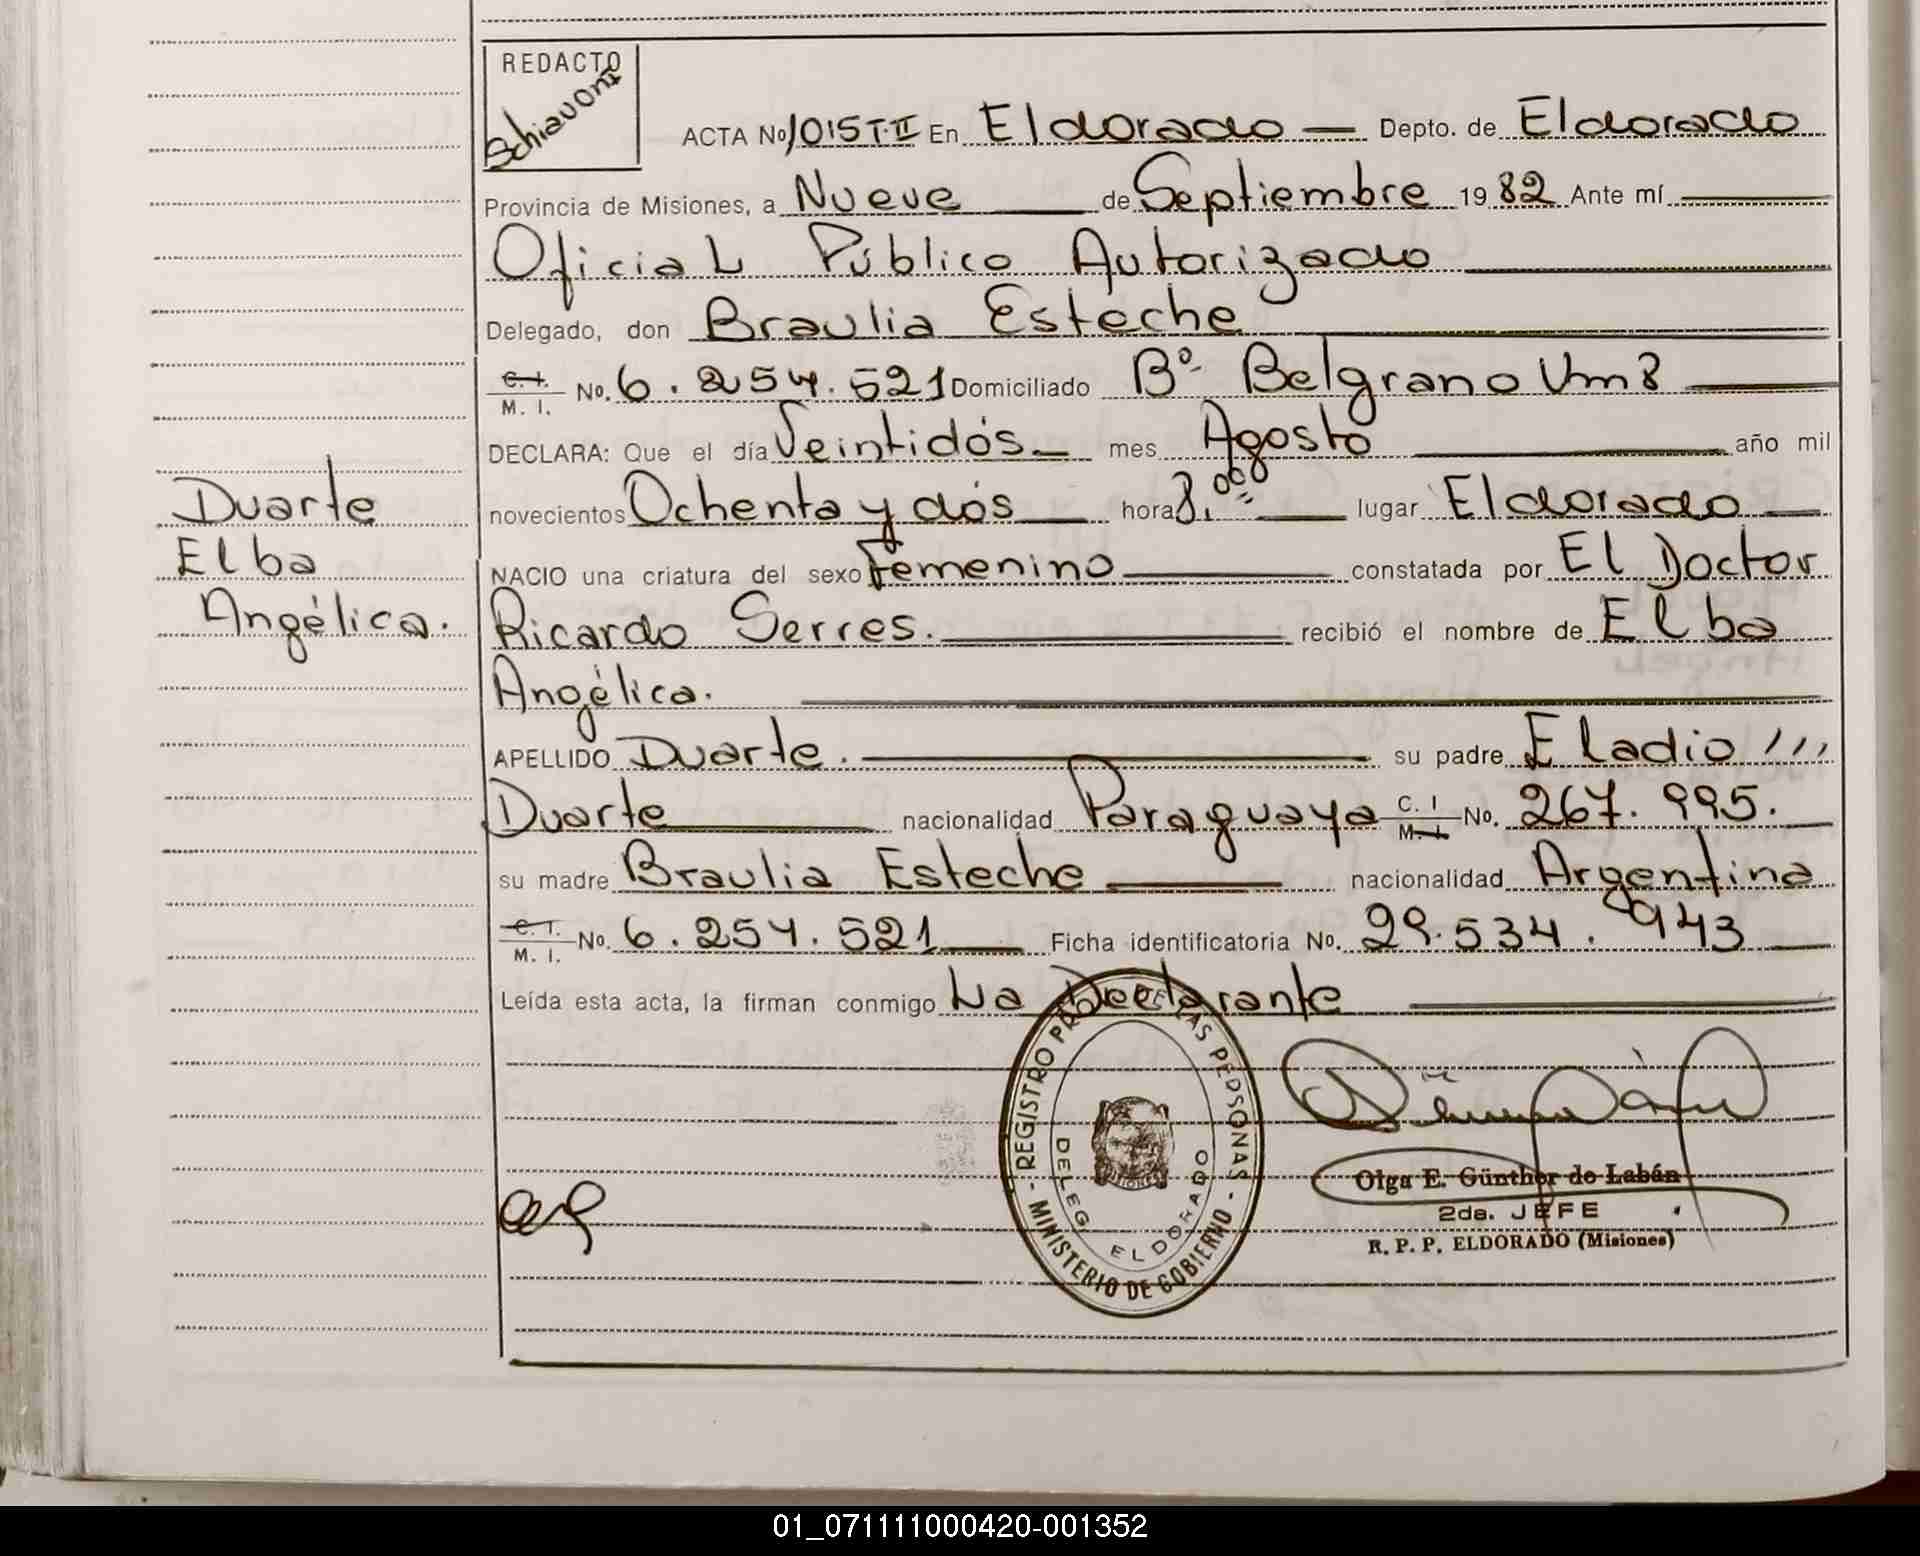 REDACTO
Schiavoni
ACTA No 1015 T·II En Eldorado — Depto. de Eldorado
Provincia de Misiones, a Nueve de Septiembre 1982 Ante mí
Oficial Público Autorizado
Delegado, don Braulia Esteche
C. I. M. I. No. 6.254.521 Domiciliado Bº Belgrano Km 8
DECLARA: Que el día Veintidós mes Agosto año mil
Duarte
Elba
Angélica.
novecientos Ochenta y dós hora 8.ººº lugar Eldorado
NACIO una criatura del sexo Femenino constatada por El Doctor
Ricardo Serres. recibió el nombre de Elba
Angélica.
APELLIDO Duarte. su padre Eladio ///
Duarte nacionalidad Paraguaya C. I M. I. No. 267.995.
su madre Braulia Esteche nacionalidad Argentina
C. I. M. I. No. 6.254.521 Ficha identificatoria No. 29.534.943
Leída esta acta, la firman conmigo La Declarante
REGISTRO PROV. DE LAS PERSONAS - MINISTERIO DE GOBIERNO -
DELEG. ELDORADO
MISIONES
Olga E. Günther de Labán
2da. JEFE
R. P. P. ELDORADO (Misiones)
01_071111000420-001352